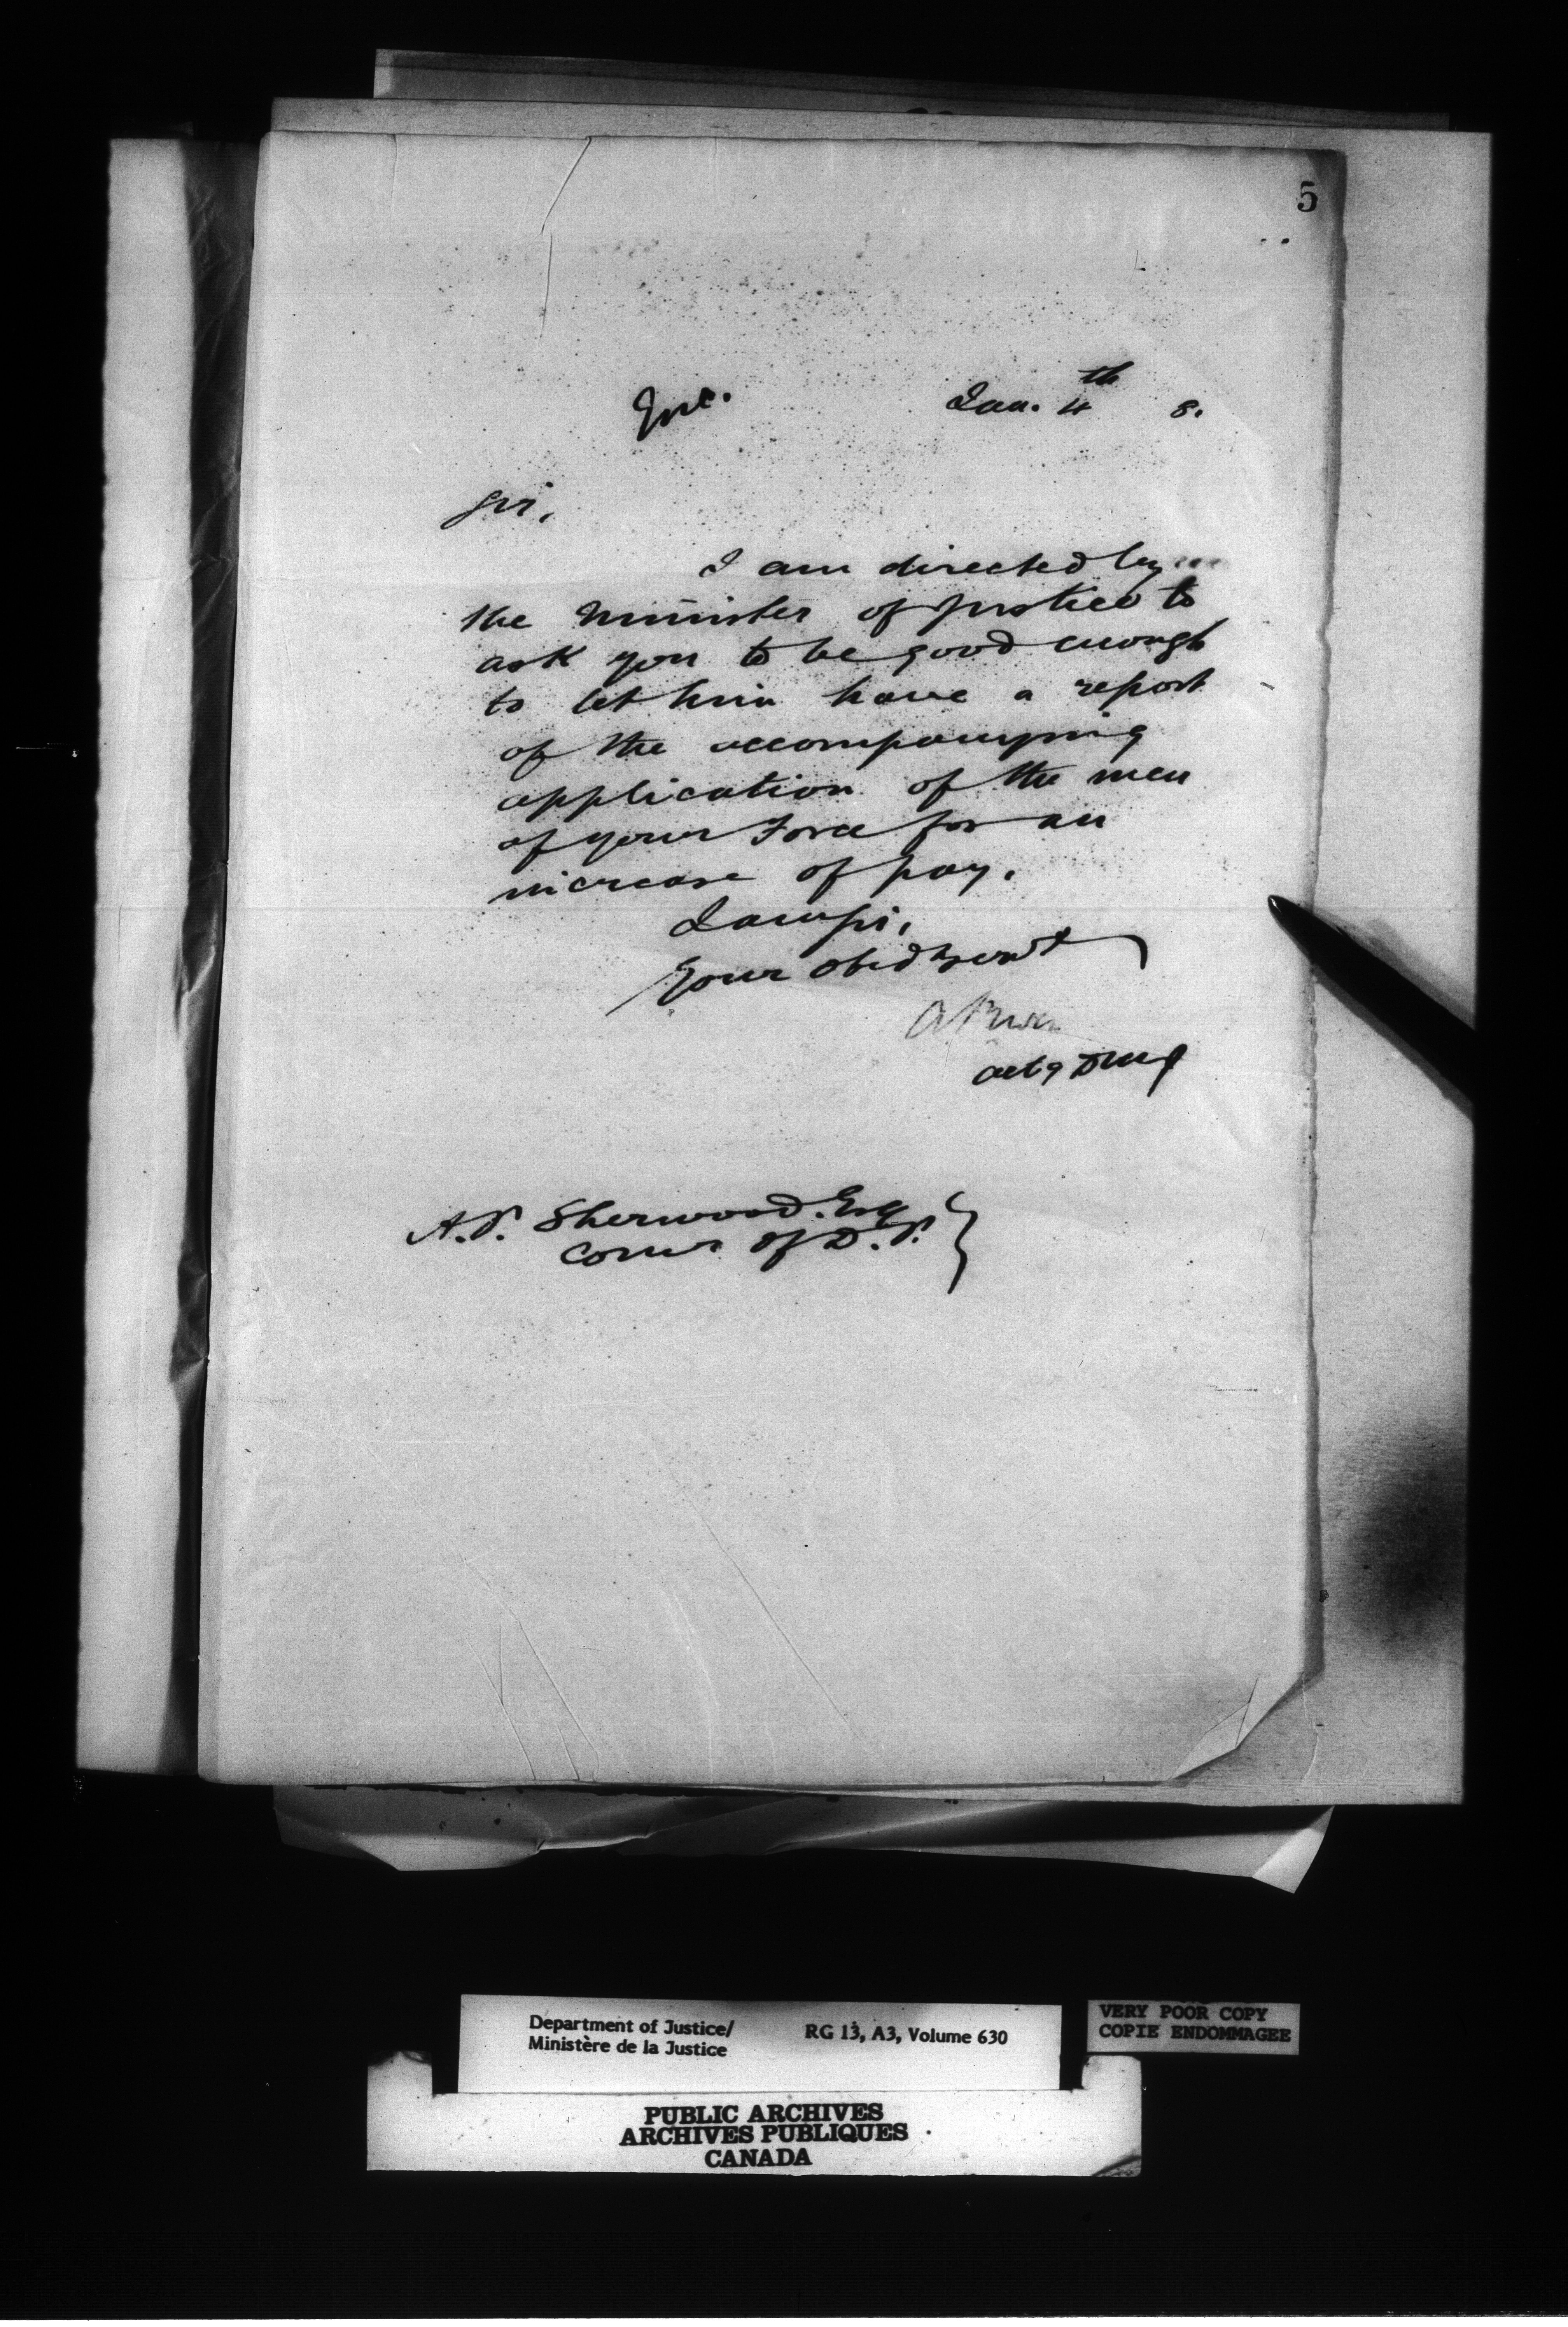 5
Enc. Jan. 4th 8.
Sir,
I am directed by
the Minister of Justice to
ask you to be good enough
to let him have a report
of the accompanying
application of the men
of your Force for an
increase of pay.
I am Sir,
Your obed Servt
A
actg DMJ
A.P. Sherwood. Esq
Comr of D.P.
Department of Justice/
Ministère de la Justice
RG 13, A3, Volume 630
VERY POOR COPY
COPIE ENDOMMAGEE
PUBLIC ARCHIVES
ARCHIVES PUBLIQUES
CANADA